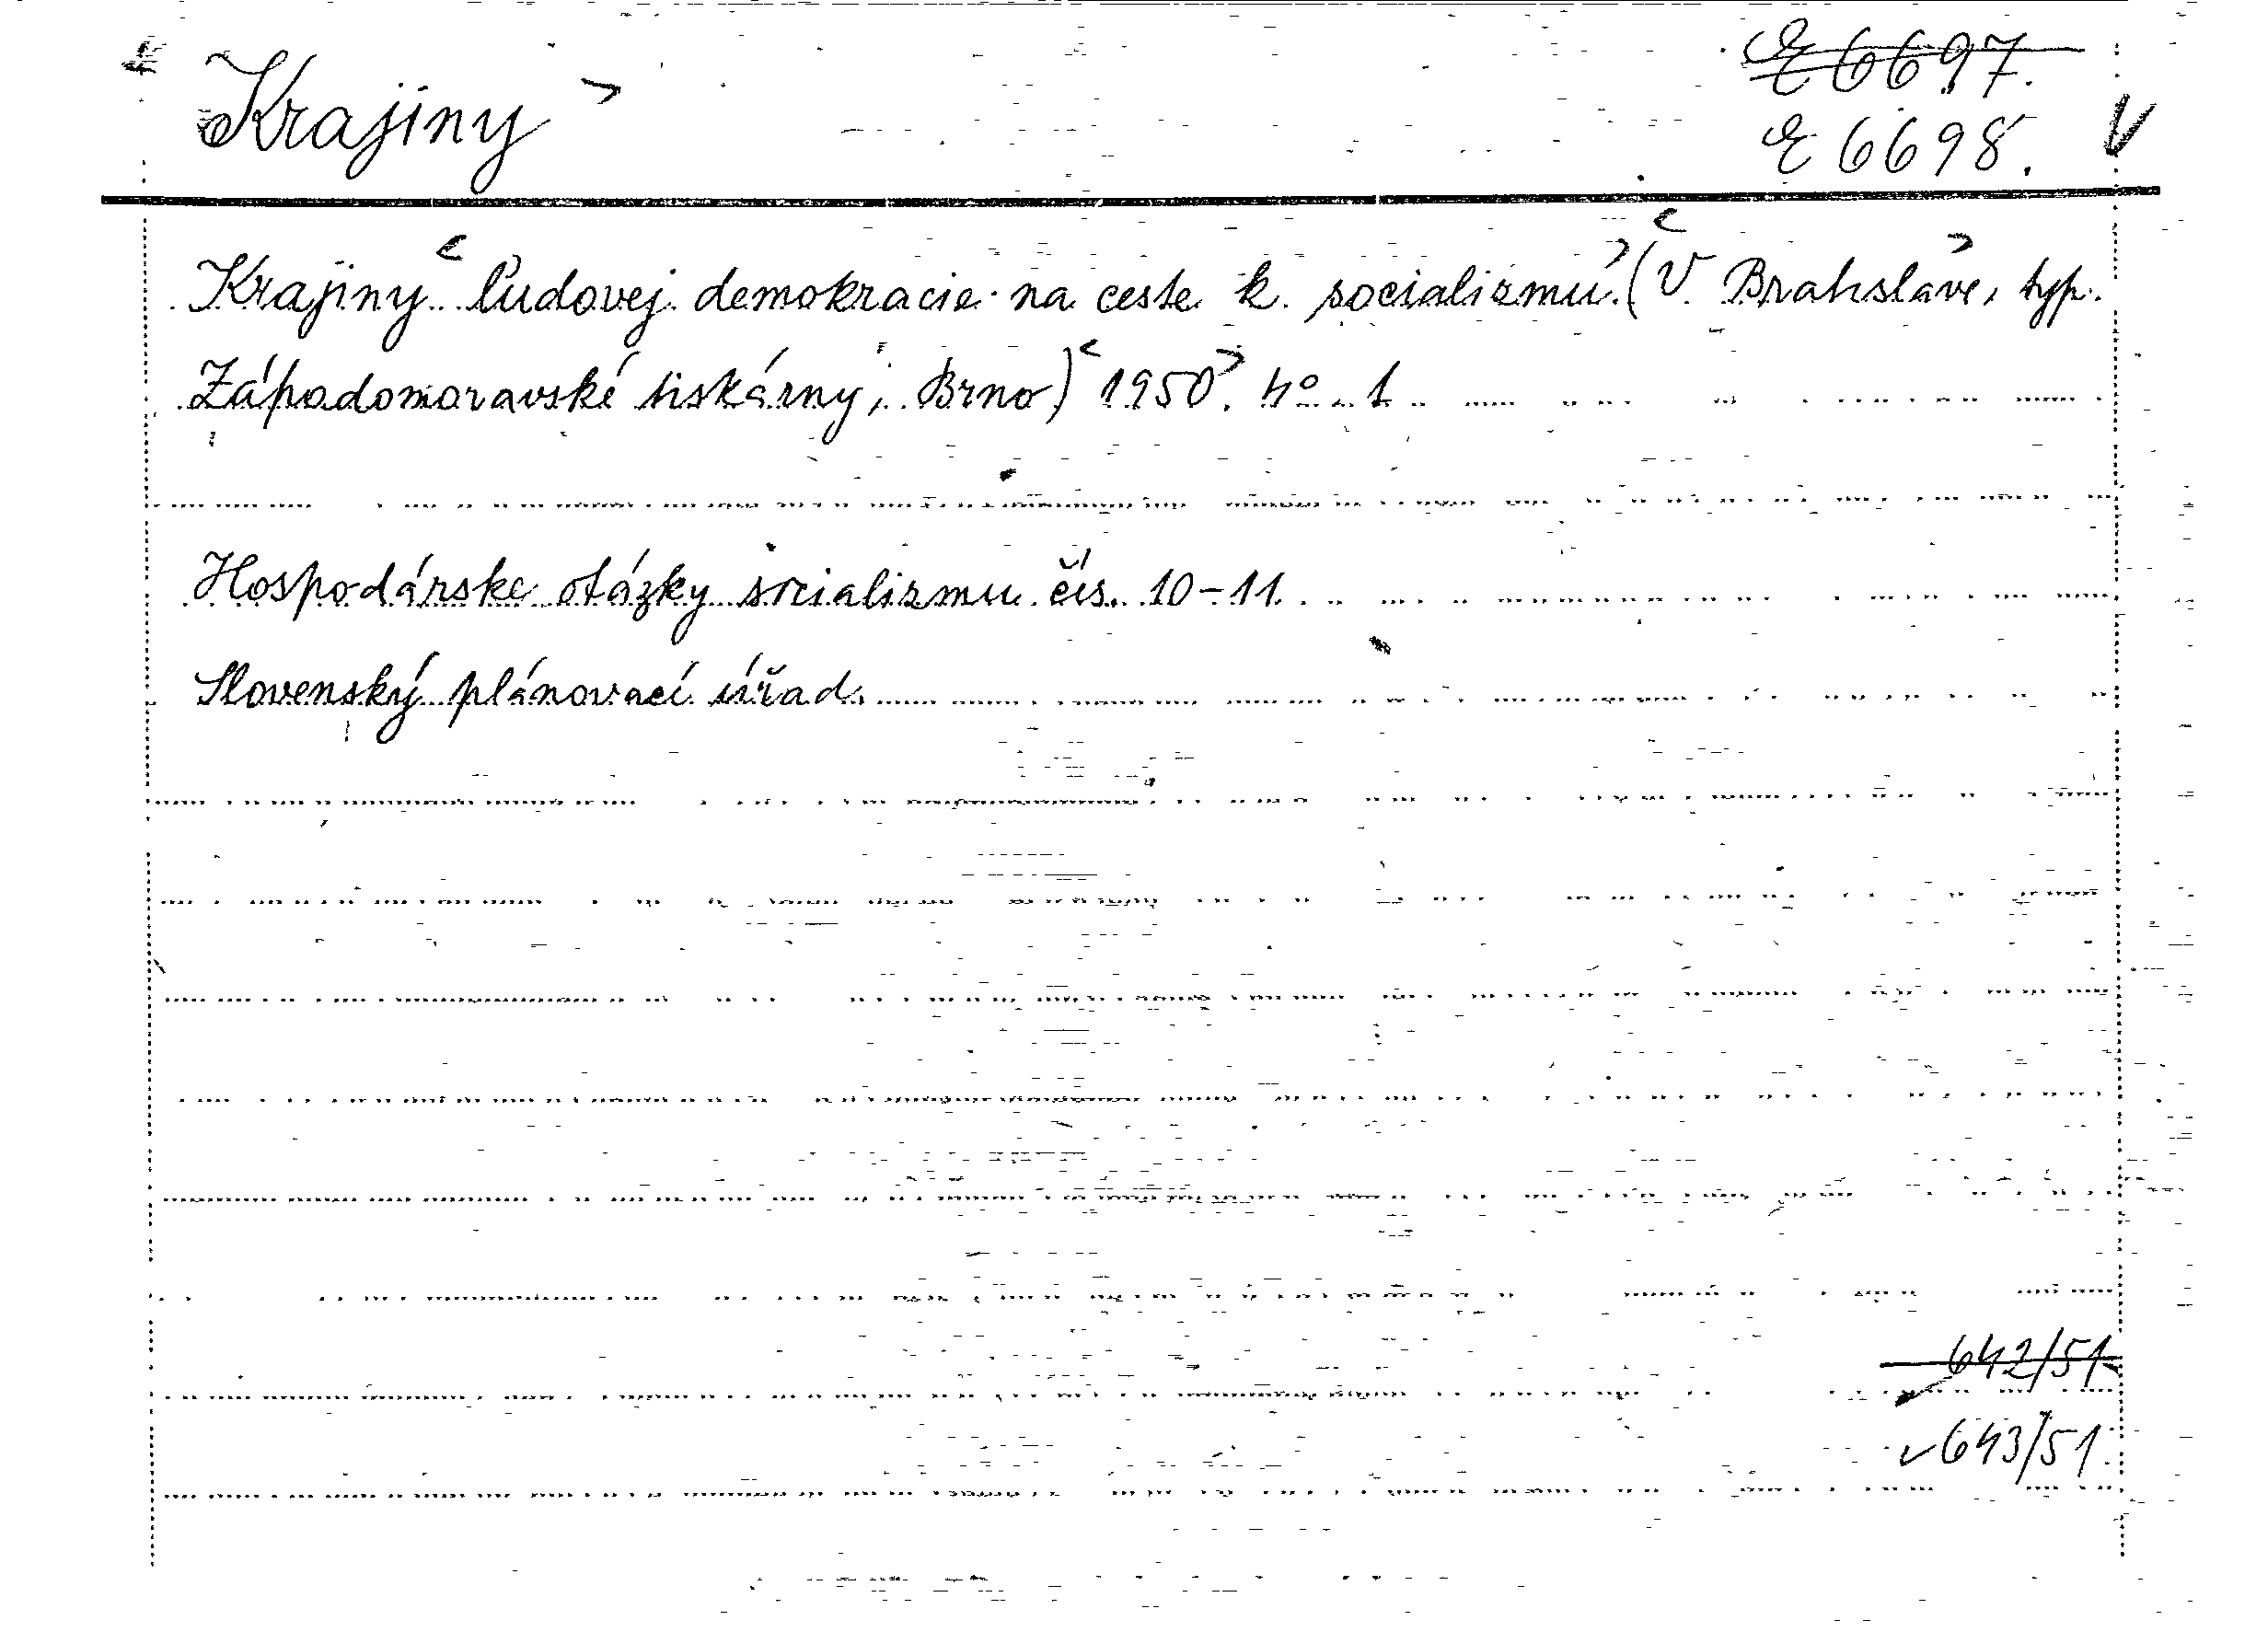 Krajiny
E 6697.
E 6698.
Krajiny ľudovej demokracie na ceste k socializmu. (V Bratislavě, typ.
Západomoravské tiskárny, Brno) 1950. 4° 1
Hospodárske otázky socializmu čís. 10-11.
Slovenský plánovací úřad.
642/51
643/51.